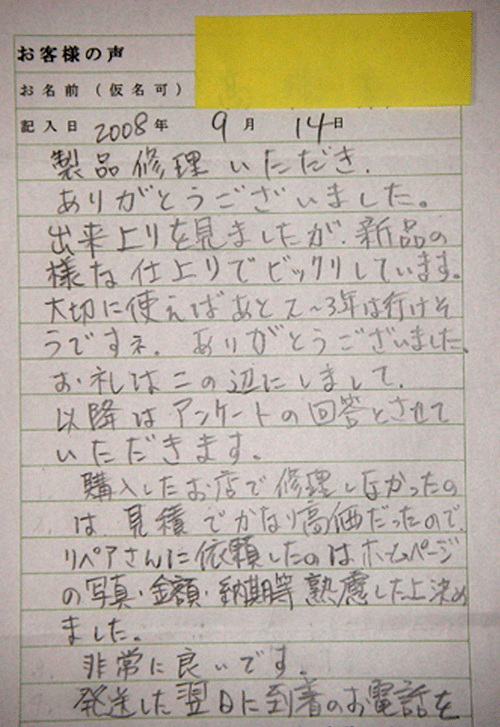 お客様の声
お名前(仮名可)
記入日 2008年 9月 14日
製品修理いただき、
ありがとうございました。
出来上りを見ましたが、新品の
様な仕上りでビックリしています。
大切に使えばあと2~3年は行けそ
うですネ。ありがとうございました。
お礼はこの辺にしまして、
以降はアンケートの回答とさせて
いただきます。
購入したお店で修理しなかったの
は、見積でかなり高価だったので、
リペアさんに依頼したのはホームページ
の写真・金額・納期等熟慮した上決め
ました。
非常に良いです。
発送した翌日に到着のお電話を